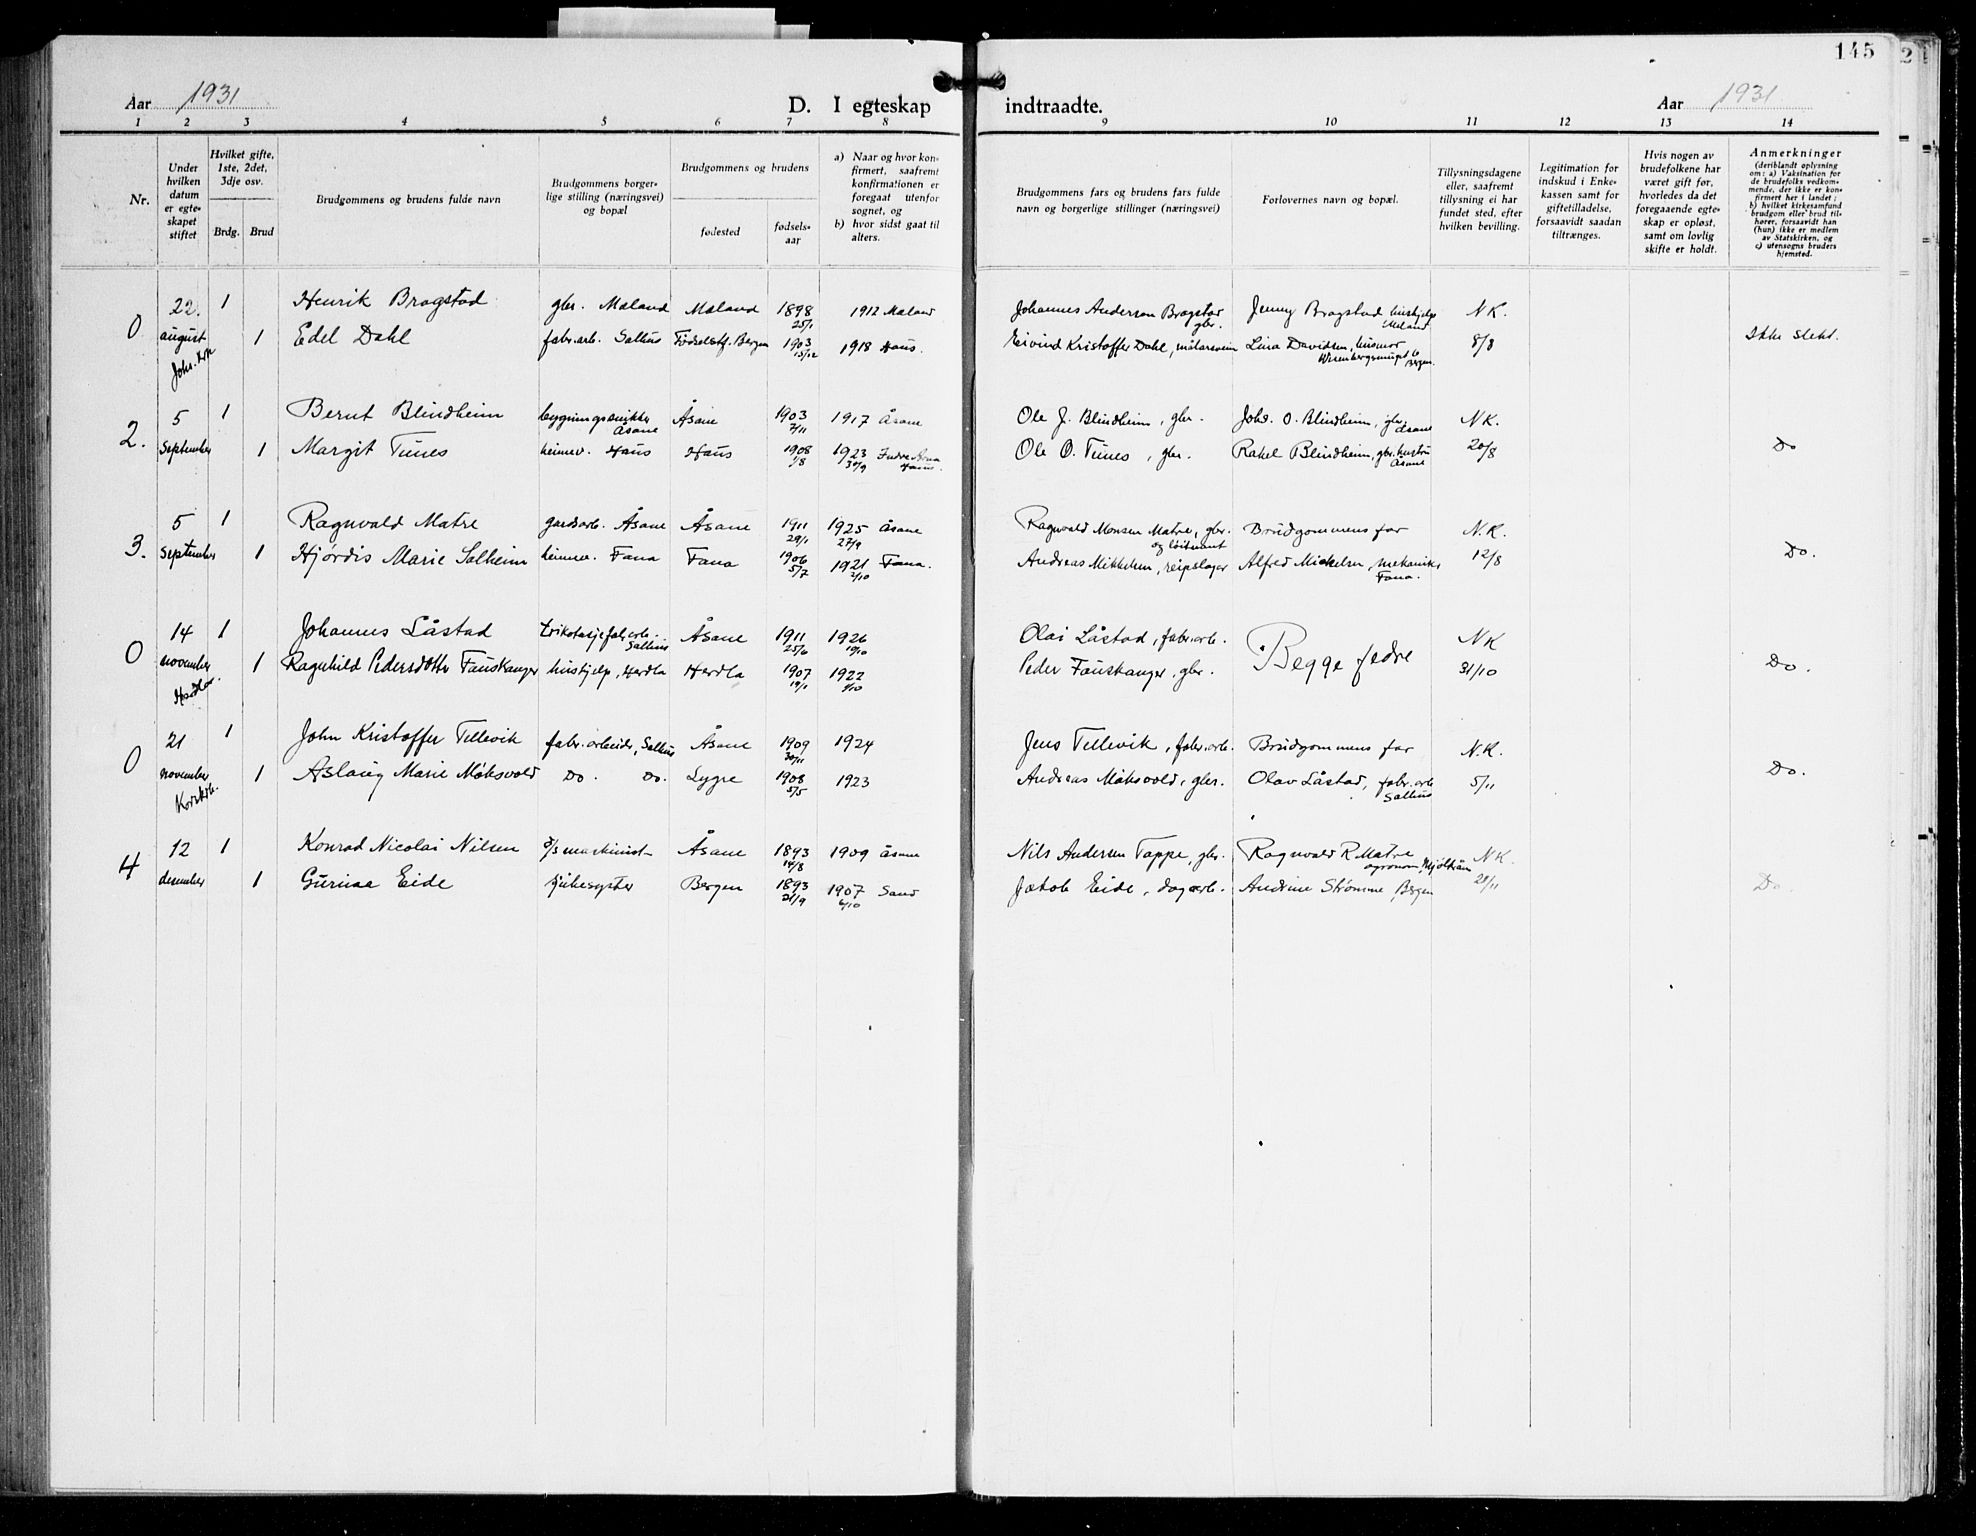 145
Aar 1931 D. I egteskap indtraadte. Aar 1931
1 2 3 4 5 6 7 8 9 10 11 12 13 14
Nr.
Under hvilken datum er egteskapet stiftet
Hvilket gifte, 1ste, 2det, 3dje osv.
Brdg. Brud
Brudgommens og brudens fulde navn
Brudgommens borgerlige stilling (næringsvei) og bopæl
Brudgommens og brudens
fødested fødselsaar
a) Naar og hvor konfirmert, saafremt konfirmationen er foregaat utenfor sognet, og
b) hvor sidst gaat til alters.
Brudgommens fars og brudens fars fulde navn og borgerlige stillinger (næringsvei)
Forlovernes navn og bopæl.
Tillysningsdagene eller, saafremt tillysning ei har fundet sted, efter hvilken bevilling.
Legitimation for indskud i Enkekassen samt for giftetilladelse, forsaavidt saadan tiltrænges.
Hvis nogen av brudefolkene har været gift før, hvorledes da det foregaaende egteskap er opløst, samt om lovlig skifte er holdt.
Anmerkninger (deriblandt oplysning om: a) Vaksination for de brudefolks vedkommende, der ikke er konfirmert her i landet; b) hvilket kirkesamfund brudgom eller brud tilhører, forsaavidt han (hun) ikke er medlem av Statskirken, og c) utensogns bruders hjemsted.
0 22. 1 Henrik Brogstad gbr. Meland Meland 1898 25/1 1912 Meland Johannes Anderson Brogstad gbr. Jenny Brogstad hushjelp Meland N.K.
august 1 Edel Dahl fabr.arb. Salhus Fødselsst. Bergen 1903 15/12 1918 Haus. Eivind Kristoffer Dahl, målarsvein Lina Davidsen, husmor Bergen. 8/8 Ikke slekt.
2. 5 1 Bernt Blindheim bygningssnikker Åsane Åsane 1903 7/11 1917 Åsane Ole J. Blindheim, gbr. Johs. O. Blindheim, gbr. Åsane N.K.
September 1 Margit Tunes heimev. Haus Haus 1908 1/8 1923 30/9 Indre Arna Haus. Ole O. Tunes, gbr. Rakel Blindheim, gbr. hustru Åsane 20/8 Do
3. 5 1 Ragnvald Matre gardsarb. Åsane Åsane 1911 29/1 1925 27/9 Åsane Ragnvald Monsen Matre, gbr. og løitnant Brudgommens far N.K.
September 1 Hjørdis Marie Solheim heimev. Fana Fana 1906 5/7 1921 2/10 Fana. Andreas Mikkelsen, reipslager Alfred Mickelsen, mekaniker Fana. 12/8 Do.
0 14 1 Johannes Låstad trikotasjefabr.arb. Salhus Åsane 1911 25/6 1926 10/10 Olai Låstad, fabr.arb. Begge fedre N.K
november 1 Ragnhild Pedersdotter Fauskanger hushjelp, Herdla Herdla 1907 19/1 1922 1/10 Peder Fauskanger, gbr. 31/10 Do.
0 21 1 John Kristoffer Tellevik fabr.arbeider, Salhus Åsane 1909 30/11 1924 Jens Tellevik, fabr.arb. Brudgommens far N.K.
november Korskrk. 1 Aslaug Marie Møksvold Do. Do. Lygre 1908 5/5 1923 Andreas Møksvold, gbr. Olav Låstad, fabr.arb Salhus 5/11 Do.
4 12 1 Konrad Nicolai Nilsen d/s maskinist Åsane 1893 14/8 1909 Åsane Nils Andersen Tappe, gbr. Ragnvald R. Matre agronom, Mjeltkån N.K.
desember 1 Gurina Eide sjukesyster Bergen 1893 21/9 1907 6/10 Sand Jakob Eide, dagarb. Andrine Strømme Bergen 28/11 Do.